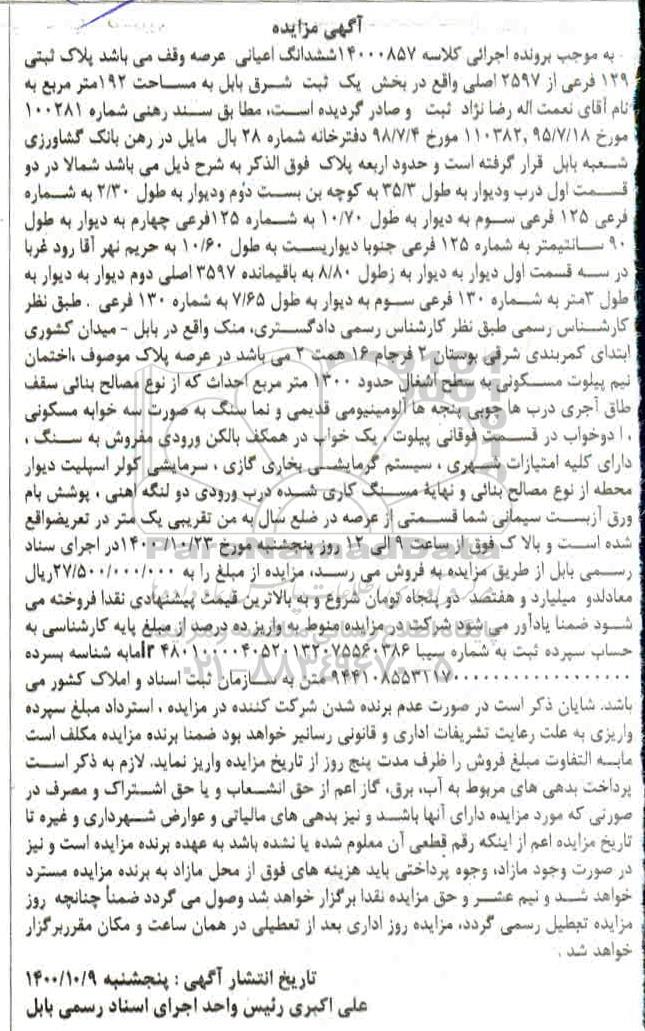 آگهی مزایده
به موجب پرونده اجرائی کلاسه ۱۴۰۰۰۸۵۷ ششدانگ اعیانی عرصه وقف می باشد پلاک ثبتی
۱۲۹ فرعی از ۲۵۹۷ اصلی واقع در بخش یک ثبت شرق بابل به مساحت ۱۹۲متر مربع به
نام آقای نعمت اله رضا نژاد ثبت و صادر گردیده است، مطابق سند رهنی شماره ۱۰۰۲۸۱
مورخ ۹۵/۷/۱۸ ,۱۱۰۳۸۲ مورخ ۹۸/۷/۴ دفترخانه شماره ۲۸ بال مایل در رهن بانک گشاورزی
شعبه بابل قرار گرفته است و حدود اربعه پلاک فوق الذکر به شرح ذیل می باشد شمالا در دو
قسمت اول درب ودیوار به طول ۳۵/۳ به کوچه بن بست دوم ودیوار به طول ۲/۳۰ به شماره
فرعی ۱۲۵ فرعی سوم به دیوار به طول ۱۰/۷۰ به شماره ۱۲۵فرعی چهارم به دیوار به طول
۹۰ سانتیمتر به شماره ۱۲۵ فرعی جنوبا دیواریست به طول ۱۰/۶۰ به حریم نهر آقا رود غربا
در سه قسمت اول دیوار به دیوار به زطول ۸/۸۰ به باقیمانده ۳۵۹۷ اصلی دوم دیوار به دیوار به
طول ۳متر به شماره ۱۳۰ فرعی سوم به دیوار به طول ۷/۶۵ به شماره ۱۳۰ فرعی . طبق نظر
کارشناس رسمی طبق نظر کارشناس رسمی دادگستری، منک واقع در بابل - میدان کشوری
ابتدای کمربندی شرقی بوستان ۲ فرجام ۱۶ همت ۲ می باشد در عرصه پلاک موصوف ،اختمان
نیم پیلوت مسکونی به سطح اشغال حدود ۱۳۰۰ متر مربع احداث که از نوع مصالح بنائی سقف
طاق آجری درب ها چوبی پنجه ها آلومینیومی قدیمی و نما سنگ به صورت سه خوابه مسکونی
، ا دوخواب در قسمت فوقانی پیلوت ، یک خواب در همکف بالکن ورودی مفروش به سنگ ،
دارای کلیه امتیازات شهری ، سیستم گرمایشی بخاری گازی ، سرمایشی کولر اسپلیت دیوار
محطه از نوع مصالح بنائی و نهایة مسنگ کاری شده درب ورودی دو لنگه آهنی ، پوشش بام
ورق آزبست سیمانی شما قسمتی از عرصه در ضلع سال به من تقریبی یک متر در تعریضواقع
شده است و بالا ک فوق از ساعت ۹ الی ۱۲ روز پنجشنبه مورخ ۱۴۰۰/۱۰/۲۳در اجرای سناد
رسمی بابل از طریق مزایده به فروش می رسد، مزایده از مبلغ را به ۲۷/۵۰۰/۰۰۰/۰۰۰ریال
معادلدو میلیارد و هفتصد دو پنجاه تومان شروع و به بالاترین قیمت پیشنهادی نقدا فروخته می
شود ضمنا یادآور می شود شرکت در مزایده منوط به واریز ده درصد از مبلغ پایه کارشناسی به
حساب سپرده ثبت به شماره سیبا ir ۴۸۰۱۰۰۰۰۴۰۵۲۰۱۳۲۰۷۵۵۶۰۳۸۶مابه شناسه بسرده
۹۴۴۱۰۸۵۵۳۲۱۷۰۰۰۰۰۰۰۰۰۰۰۰۰۰۰۰۰۰ متن به سازمان ثبت اسناد و املاک کشور می
باشد. شایان ذکر است در صورت عدم برنده شدن شرکت کننده در مزایده ، استرداد مبلغ سپرده
واریزی به علت رعایت تشریفات اداری و قانونی رسانیر خواهد بود ضمنا برنده مزایده مکلف است
مابه التفاوت مبلغ فروش را ظرف مدت پنج روز از تاریخ مزایده واریز نماید. لازم به ذکر است
پرداخت بدهی های مربوط به آب، برق، گاز اعم از حق انشعاب و یا حق اشتراک و مصرف در
صورتی که مورد مزایده دارای آنها باشد و نیز بدهی های مالیاتی و عوارض شهرداری و غیره تا
تاریخ مزایده اعم از اینکه رقم قطعی آن معلوم شده یا نشده باشد به عهده برنده مزایده است و نیز
در صورت وجود مازاد، وجوه پرداختی باید هزینه های فوق از محل مازاد به برنده مزایده مسترد
خواهد شد و نیم عشر و حق مزایده نقدا برگزار خواهد شد وصول می گردد ضمناً چنانچه روز
مزایده تعطیل رسمی گردد، مزایده روز اداری بعد از تعطیلی در همان ساعت و مکان مقرربرگزار
خواهد شد .
تاریخ انتشار آگهی : پنجشنبه ۱۴۰۰/۱۰/۹
علی اکبری رئیس واحد اجرای اسناد رسمی بابل